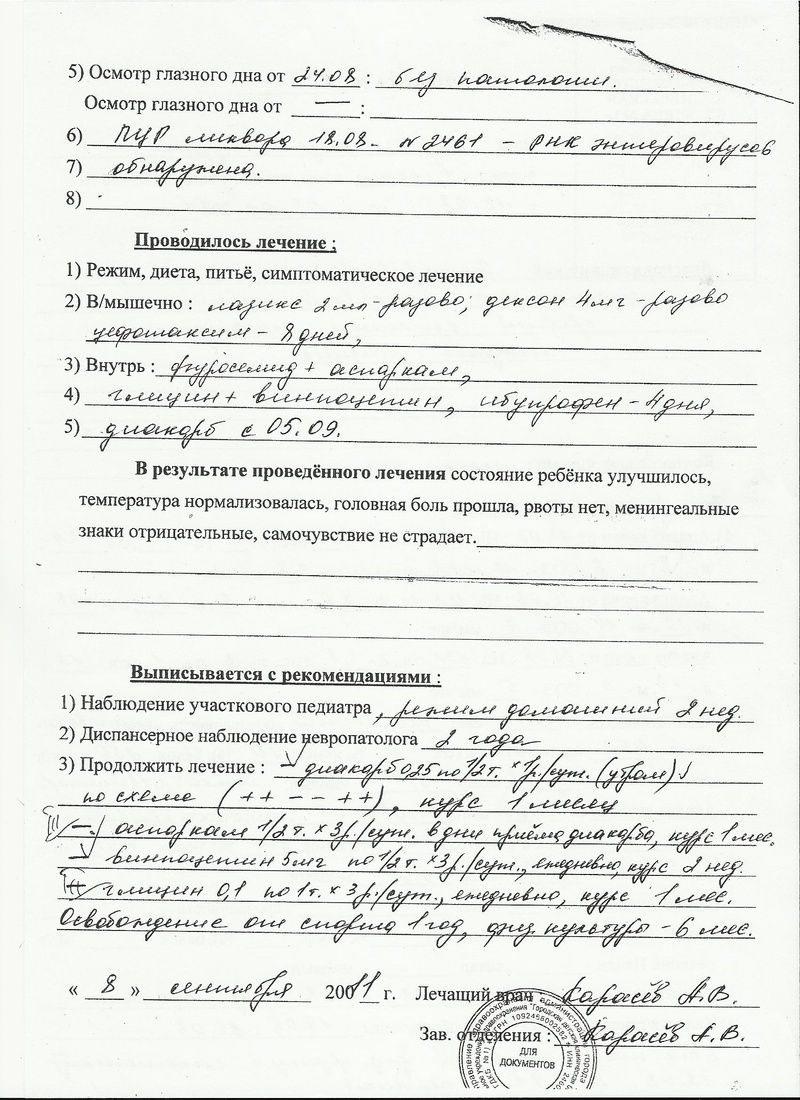 5) Осмотр глазного дна от 24.08 : без патологии.
Осмотр глазного дна от — :
6) ПЦР ликвора 18.08. N 2461 – РНК энтеровирусов
7) обнаружена.
8)
Проводилось лечение ;
1) Режим, диета, питьё, симптоматическое лечение
2) В/мышечно : лазикс 2мл-разово; дексон 4мг-разово
цефотаксим – 8 дней,
3) Внутрь : фуросемид + аспаркам,
4) глицин + винпоцетин, ибупрофен – 4 дня,
5) диакарб с 05.09.
В результате проведённого лечения состояние ребёнка улучшилось,
температура нормализовалась, головная боль прошла, рвоты нет, менингеальные
знаки отрицательные, самочувствие не страдает.
Выписывается с рекомендациями :
1) Наблюдение участкового педиатра , режим домашний 2 нед.
2) Диспансерное наблюдение невропатолога 2 года
3) Продолжить лечение : – диакарб 0,25 по 1/2 т. × 1р./сут. (утром)
по схеме (++ -- ++), курс 1 месяц
– аспаркам 1/2 т. × 3р./сут. в дни приёма диакарба, курс 1 мес.
– винпоцетин 5мг по 1/2 т. × 3р./сут., ежедневно, курс 2 нед.
глицин 0,1 по 1т. × 3р./сут., ежедневно, курс 1 мес.
Освобождение от спорта 1 год, физ. культуры – 6 мес.
« 8 » сентября 2011 г. Лечащий врач Карасёв А.В.
Зав. отделения : Карасёв А.В.
ДЛЯ
ДОКУМЕНТОВ